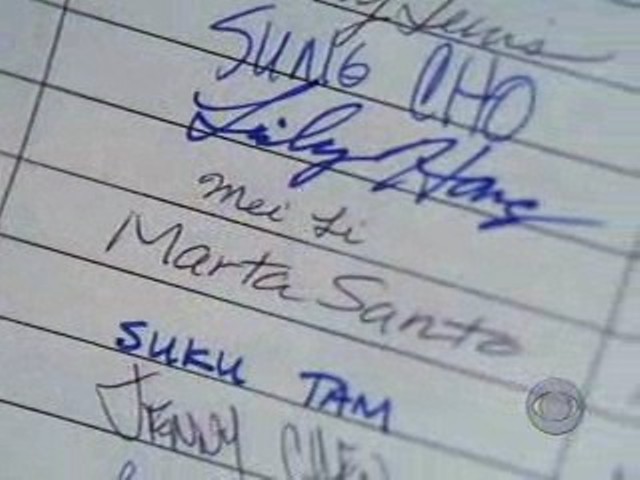 Lewis
SUNG CHO
Lily Hong
Mei Li
Marta Santo
SUKU TAM
JENNY CHEN